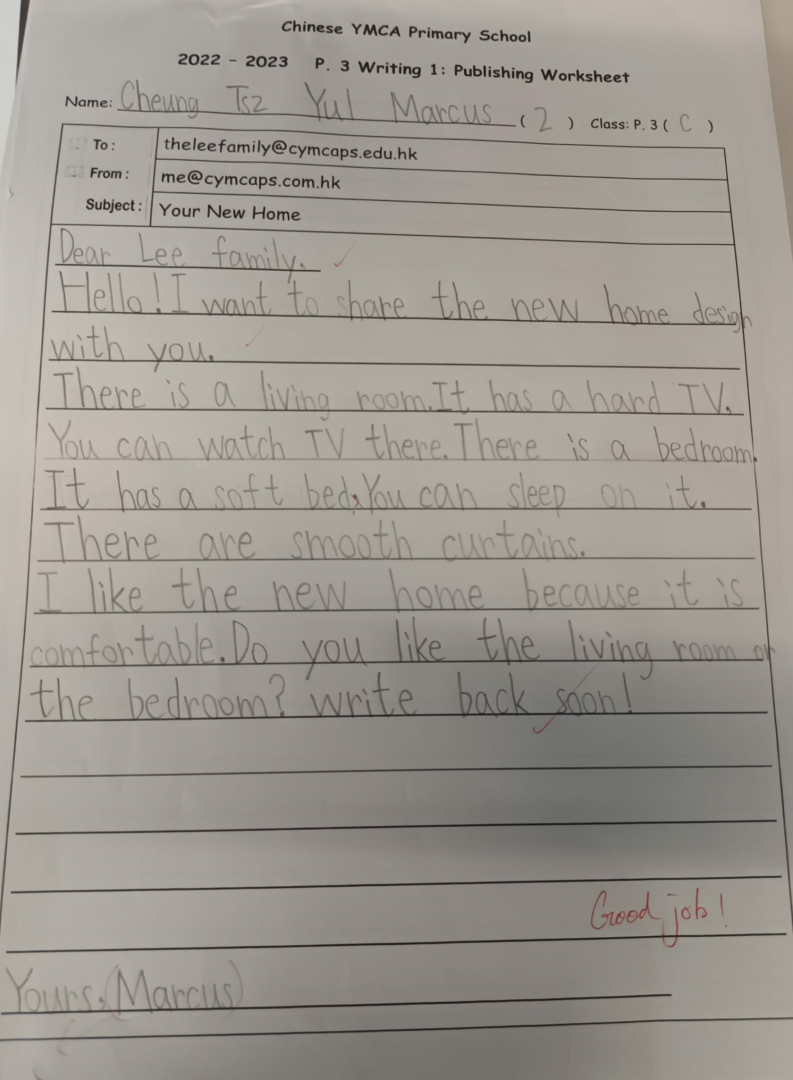 Chinese YMCA Primary School
2022 - 2023 P. 3 Writing 1: Publishing Worksheet
Name: Cheung Tsz Yul Marcus ( 2 ) Class: P. 3 ( C )
To: theleefamily@cymcaps.edu.hk
From: me@cymcaps.com.hk
Subject: Your New Home
Dear Lee family.
Hello! I want to share the new home design
with you.
There is a living room. It has a hard TV.
You can watch TV there. There is a bedroom.
It has a soft bed. You can sleep on it.
There are smooth curtains.
I like the new home because it is
comfortable. Do you like the living room or
the bedroom? Write back soon!
Good job!
Yours, (Marcus)